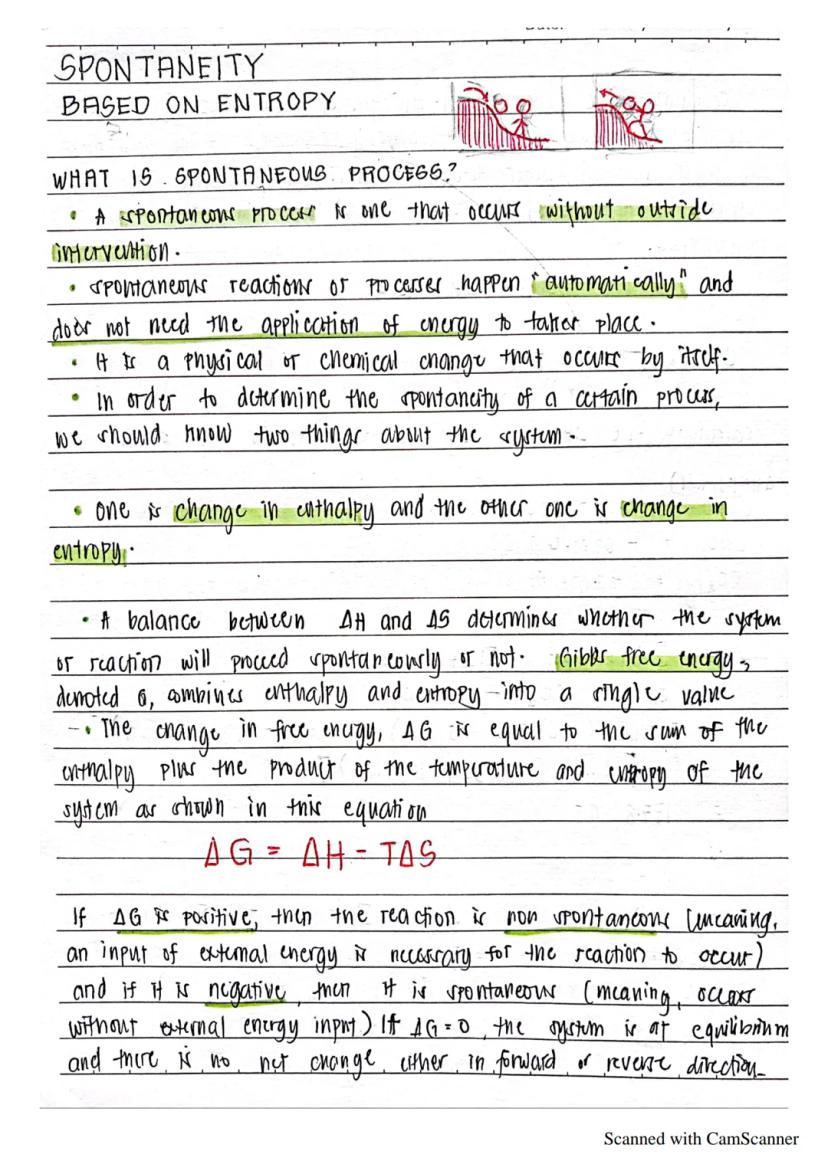 SPONTANEITY
BASED ON ENTROPY
WHAT IS SPONTANEOUS PROCESS?
• A spontaneous process is one that occurs without outside
intervention.
• spontaneous reactions or processes happen "automatically" and
does not need the application of energy to takes place.
• It is a physical or chemical change that occurs by itself.
• In order to determine the spontaneity of a certain process,
we should know two things about the system.
• one is change in enthalpy and the other one is change in
entropy.
• A balance between ΔH and ΔS determines whether the system
or reaction will proceed spontaneously or not. Gibbs free energy,
denoted G, combines enthalpy and entropy into a single value
• The change in free energy, ΔG is equal to the sum of the
enthalpy plus the product of the temperature and entropy of the
system as shown in this equation
ΔG = ΔH - TΔS
If ΔG is positive, then the reaction is non spontaneous (meaning,
an input of external energy is necessary for the reaction to occur)
and if it is negative, then it is spontaneous (meaning, occurs
without external energy input) If ΔG = 0, the system is at equilibrium
and there is no net change either in forward or reverse direction.
Scanned with CamScanner